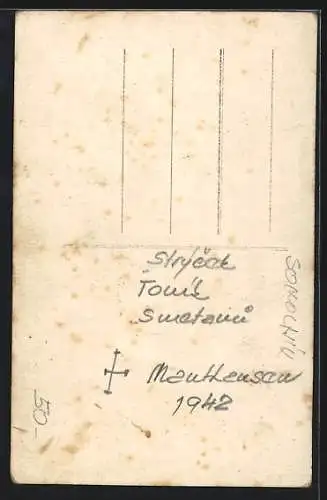 Strýček
Toník
Smetanů
† Mauthausen
1942
SOKOLNÍK
50-